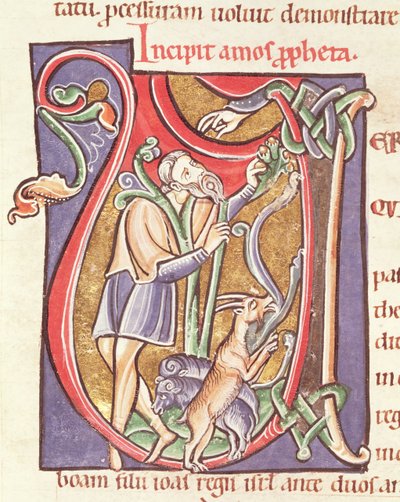 tatū ꝑcessuram uoluit demonstrare
Incipit amos ꝓpheta.
ER
QUI
pas
the
dit
in
reg
boam filii ioas regis isrl ante duos an